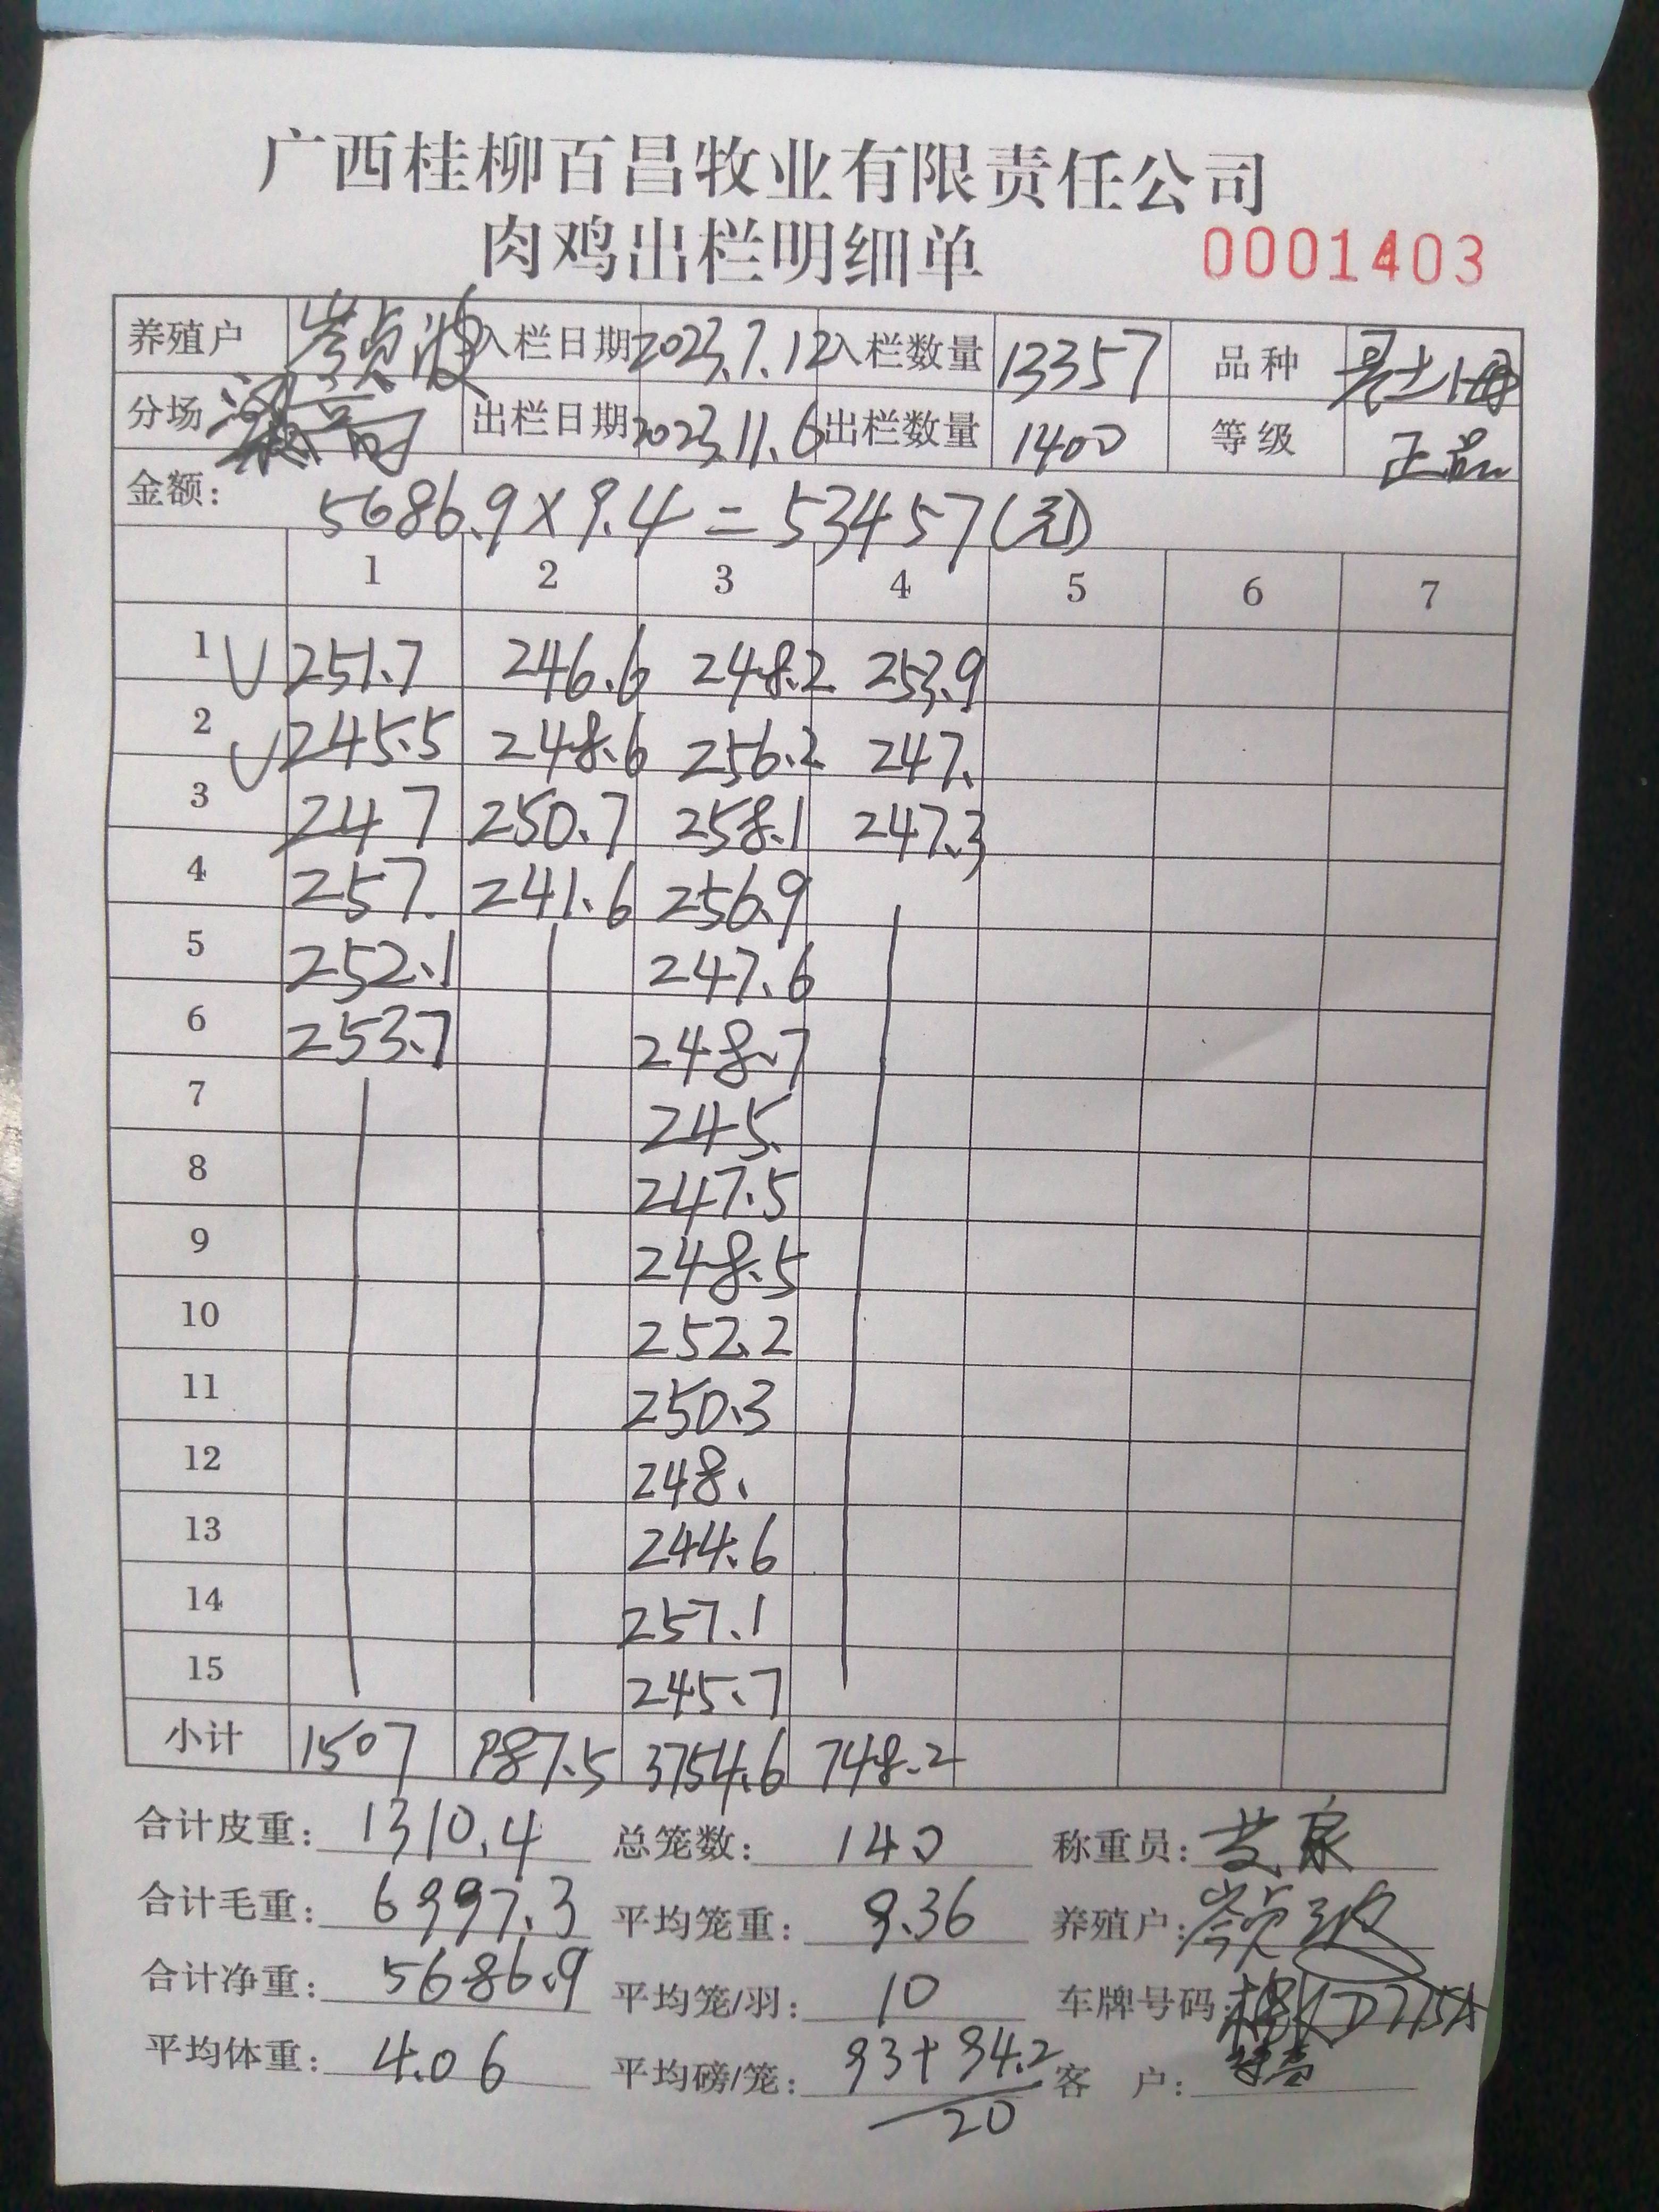 广西桂柳百昌牧业有限责任公司
肉鸡出栏明细单 0001403
养殖户 岑贞波 入栏日期 2023.7.12 入栏数量 13357 品种
分场 出栏日期 2023.11.6 出栏数量 1400 等级 正品
金额: 5686.9×9.4=53457(元)
1 2 3 4 5 6 7
1 251.7 246.6 248.2 253.9
2 245.5 248.6 256.2 247.
3 247 250.7 258.1 247.3
4 257. 241.6 256.9
5 252.1 247.6
6 253.7 248.7
7 245.
8 247.5
9 248.5
10 252.2
11 250.3
12 248.
13 244.6
14 257.1
15 245.7
小计 1507 987.5 3754.6 748.2
合计皮重: 1310.4 总笼数: 140 称重员:
合计毛重: 6997.3 平均笼重: 9.36 养殖户: 岑贞波
合计净重: 5686.9 平均笼/羽: 10 车牌号码:
平均体重: 4.06 平均磅/笼: 93+94.2 客 户:
20